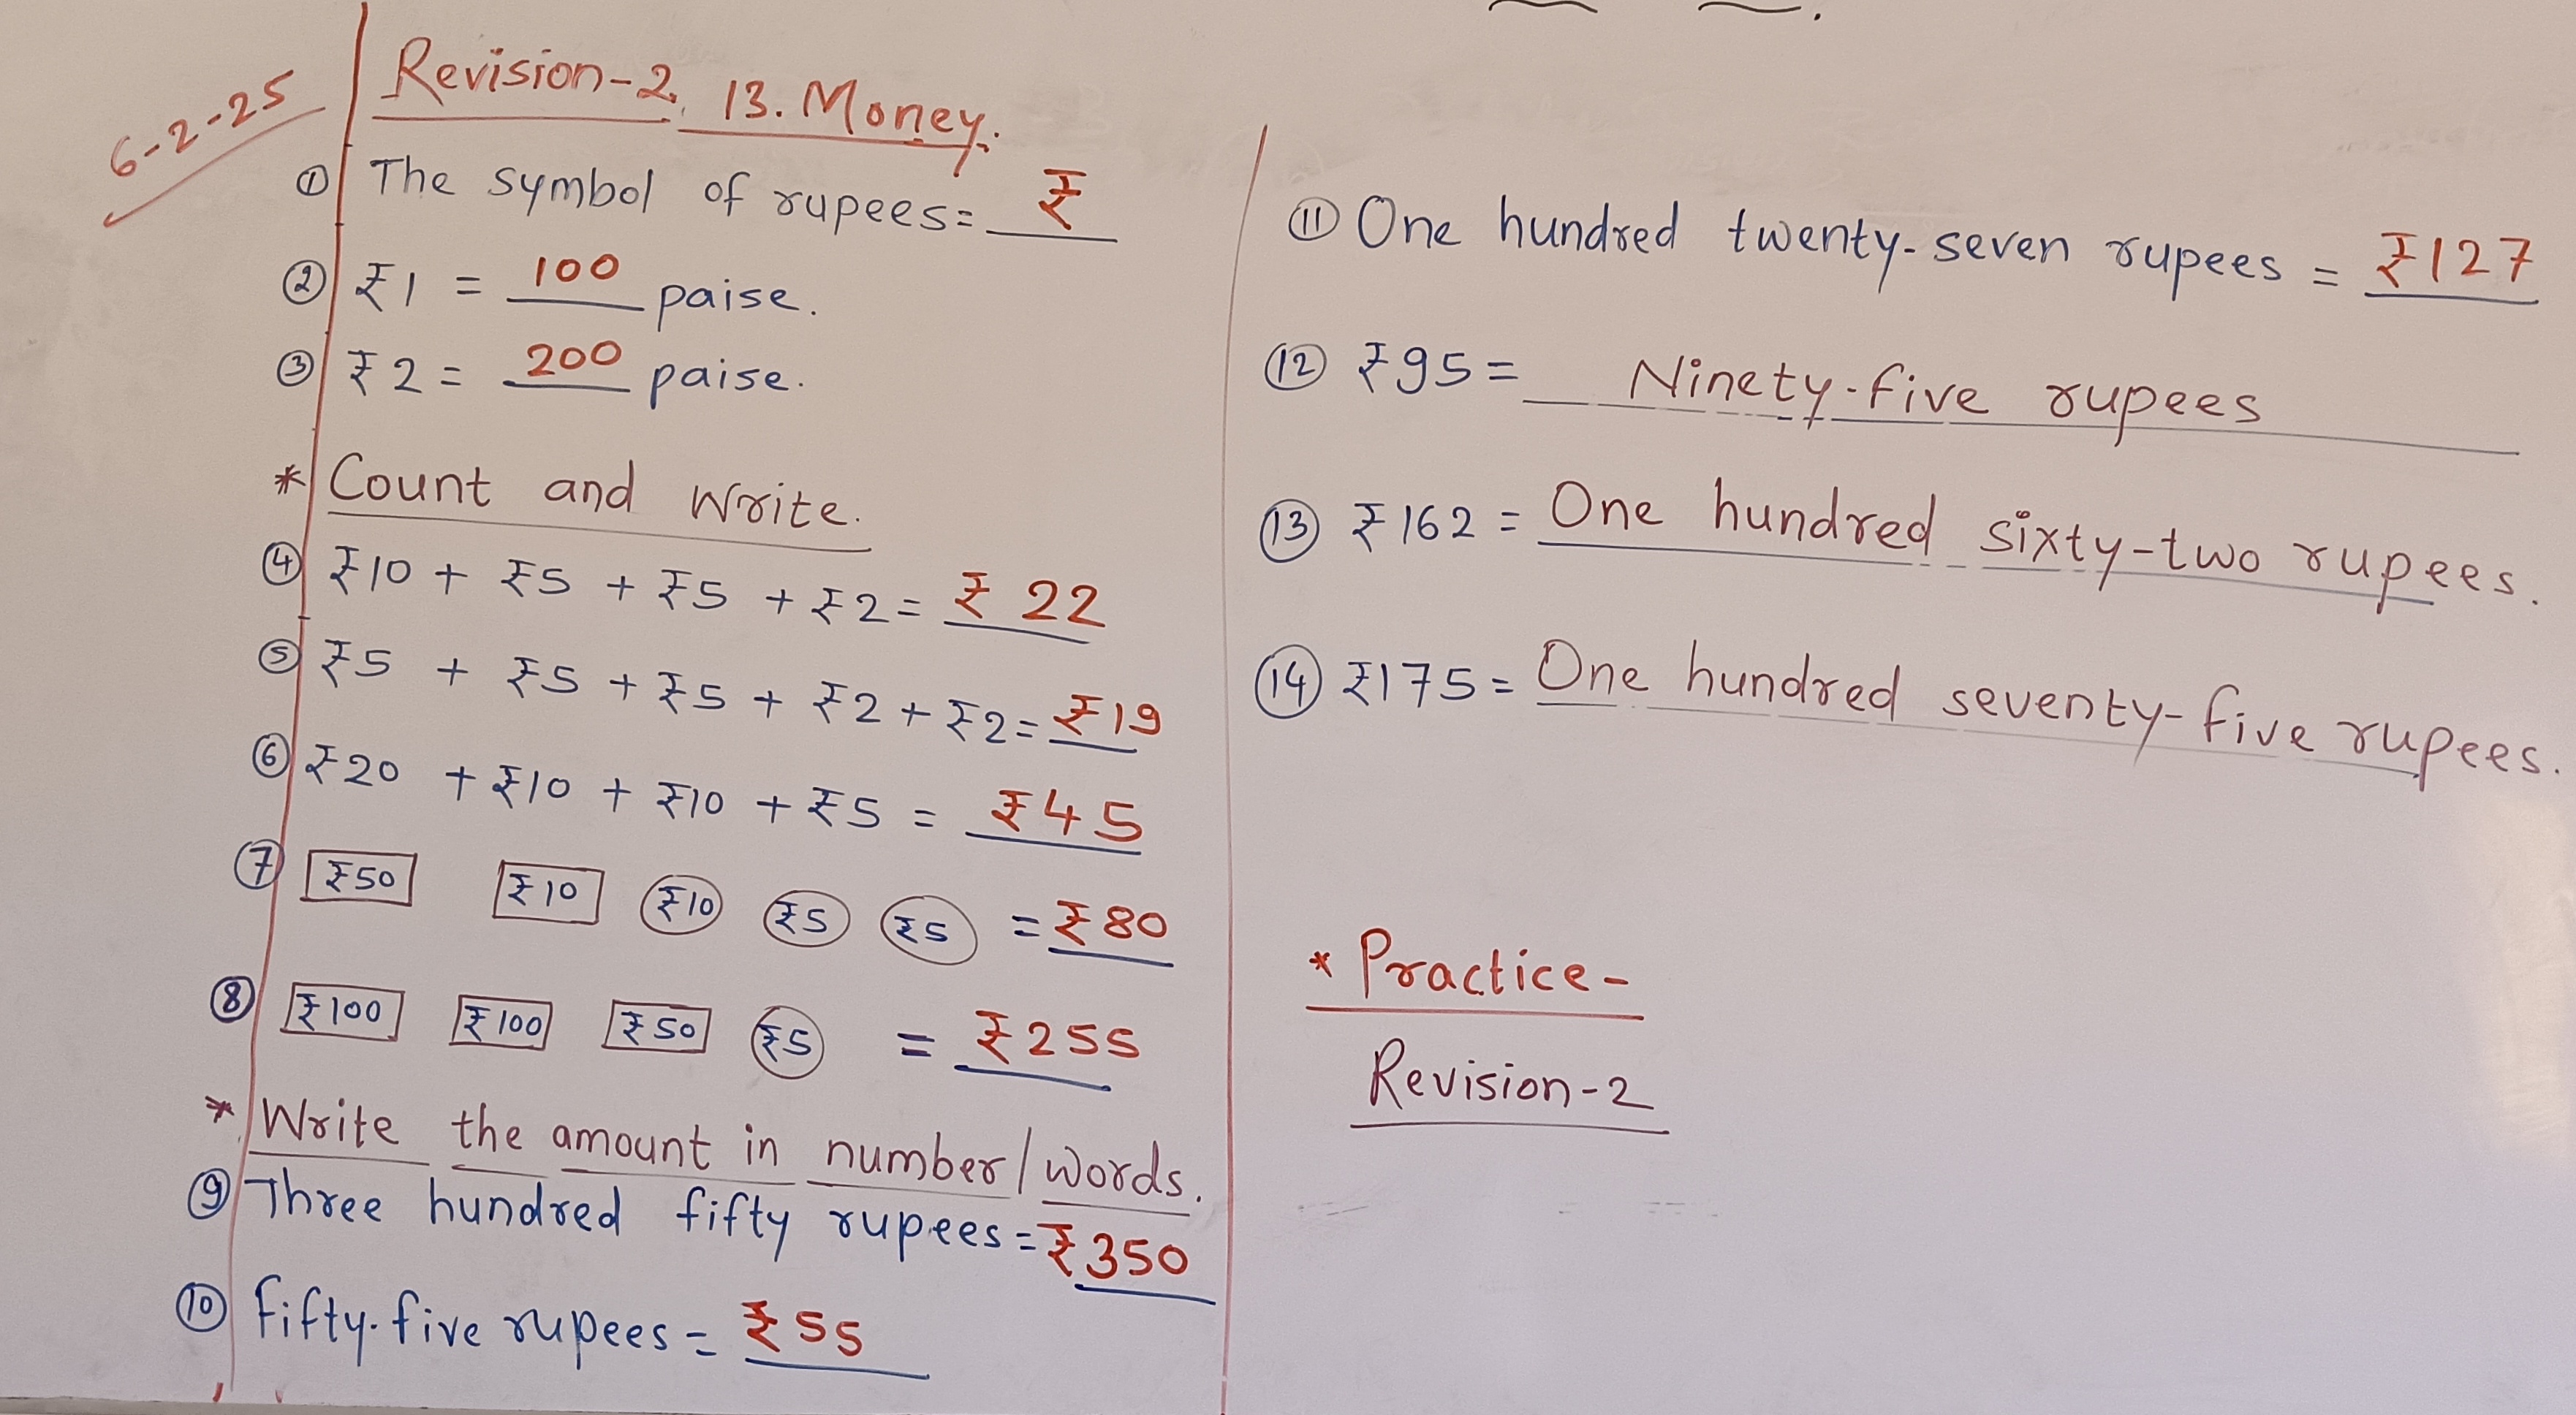 6-2-25
Revision-2, 13. Money.
① The symbol of rupees = ₹
② ₹1 = 100 paise.
③ ₹2 = 200 paise.
* Count and Write.
④ ₹10 + ₹5 + ₹5 + ₹2 = ₹22
⑤ ₹5 + ₹5 + ₹5 + ₹2 + ₹2 = ₹19
⑥ ₹20 + ₹10 + ₹10 + ₹5 = ₹45
⑦ ₹50 ₹10 ₹10 ₹5 ₹5 = ₹80
⑧ ₹100 ₹100 ₹50 ₹5 = ₹255
* Write the amount in number/words.
⑨ Three hundred fifty rupees = ₹350
⑩ fifty-five rupees = ₹55
⑪ One hundred twenty-seven rupees = ₹127
⑫ ₹95 = Ninety-five rupees
⑬ ₹162 = One hundred sixty-two rupees.
⑭ ₹175 = One hundred seventy-five rupees.
* Practice -
Revision-2